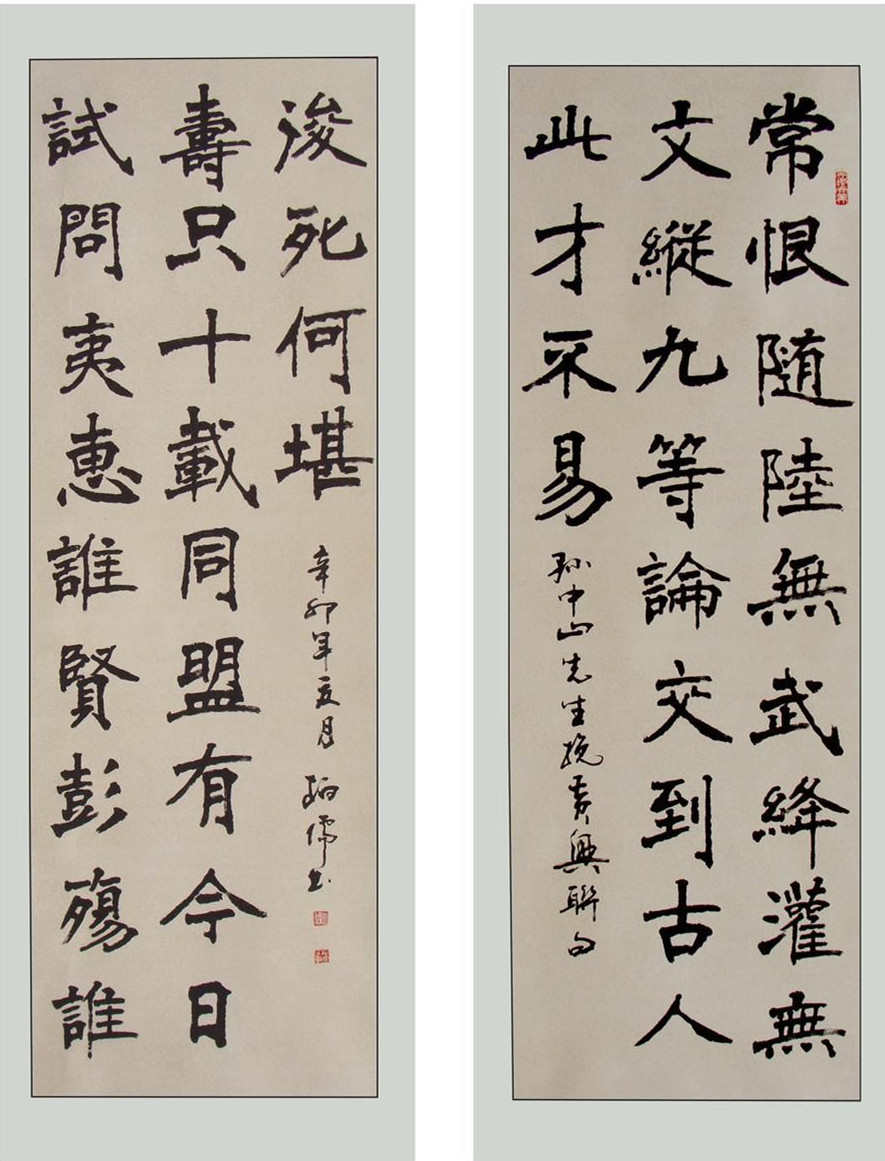 常恨随陸無武絳灌無
文縱九等論交到古人
此才不易
孙中山先生挽黄興聯句
試問夷惠誰賢彭殤誰
壽只十載同盟有今日
後死何堪
辛卯年五月 儒书